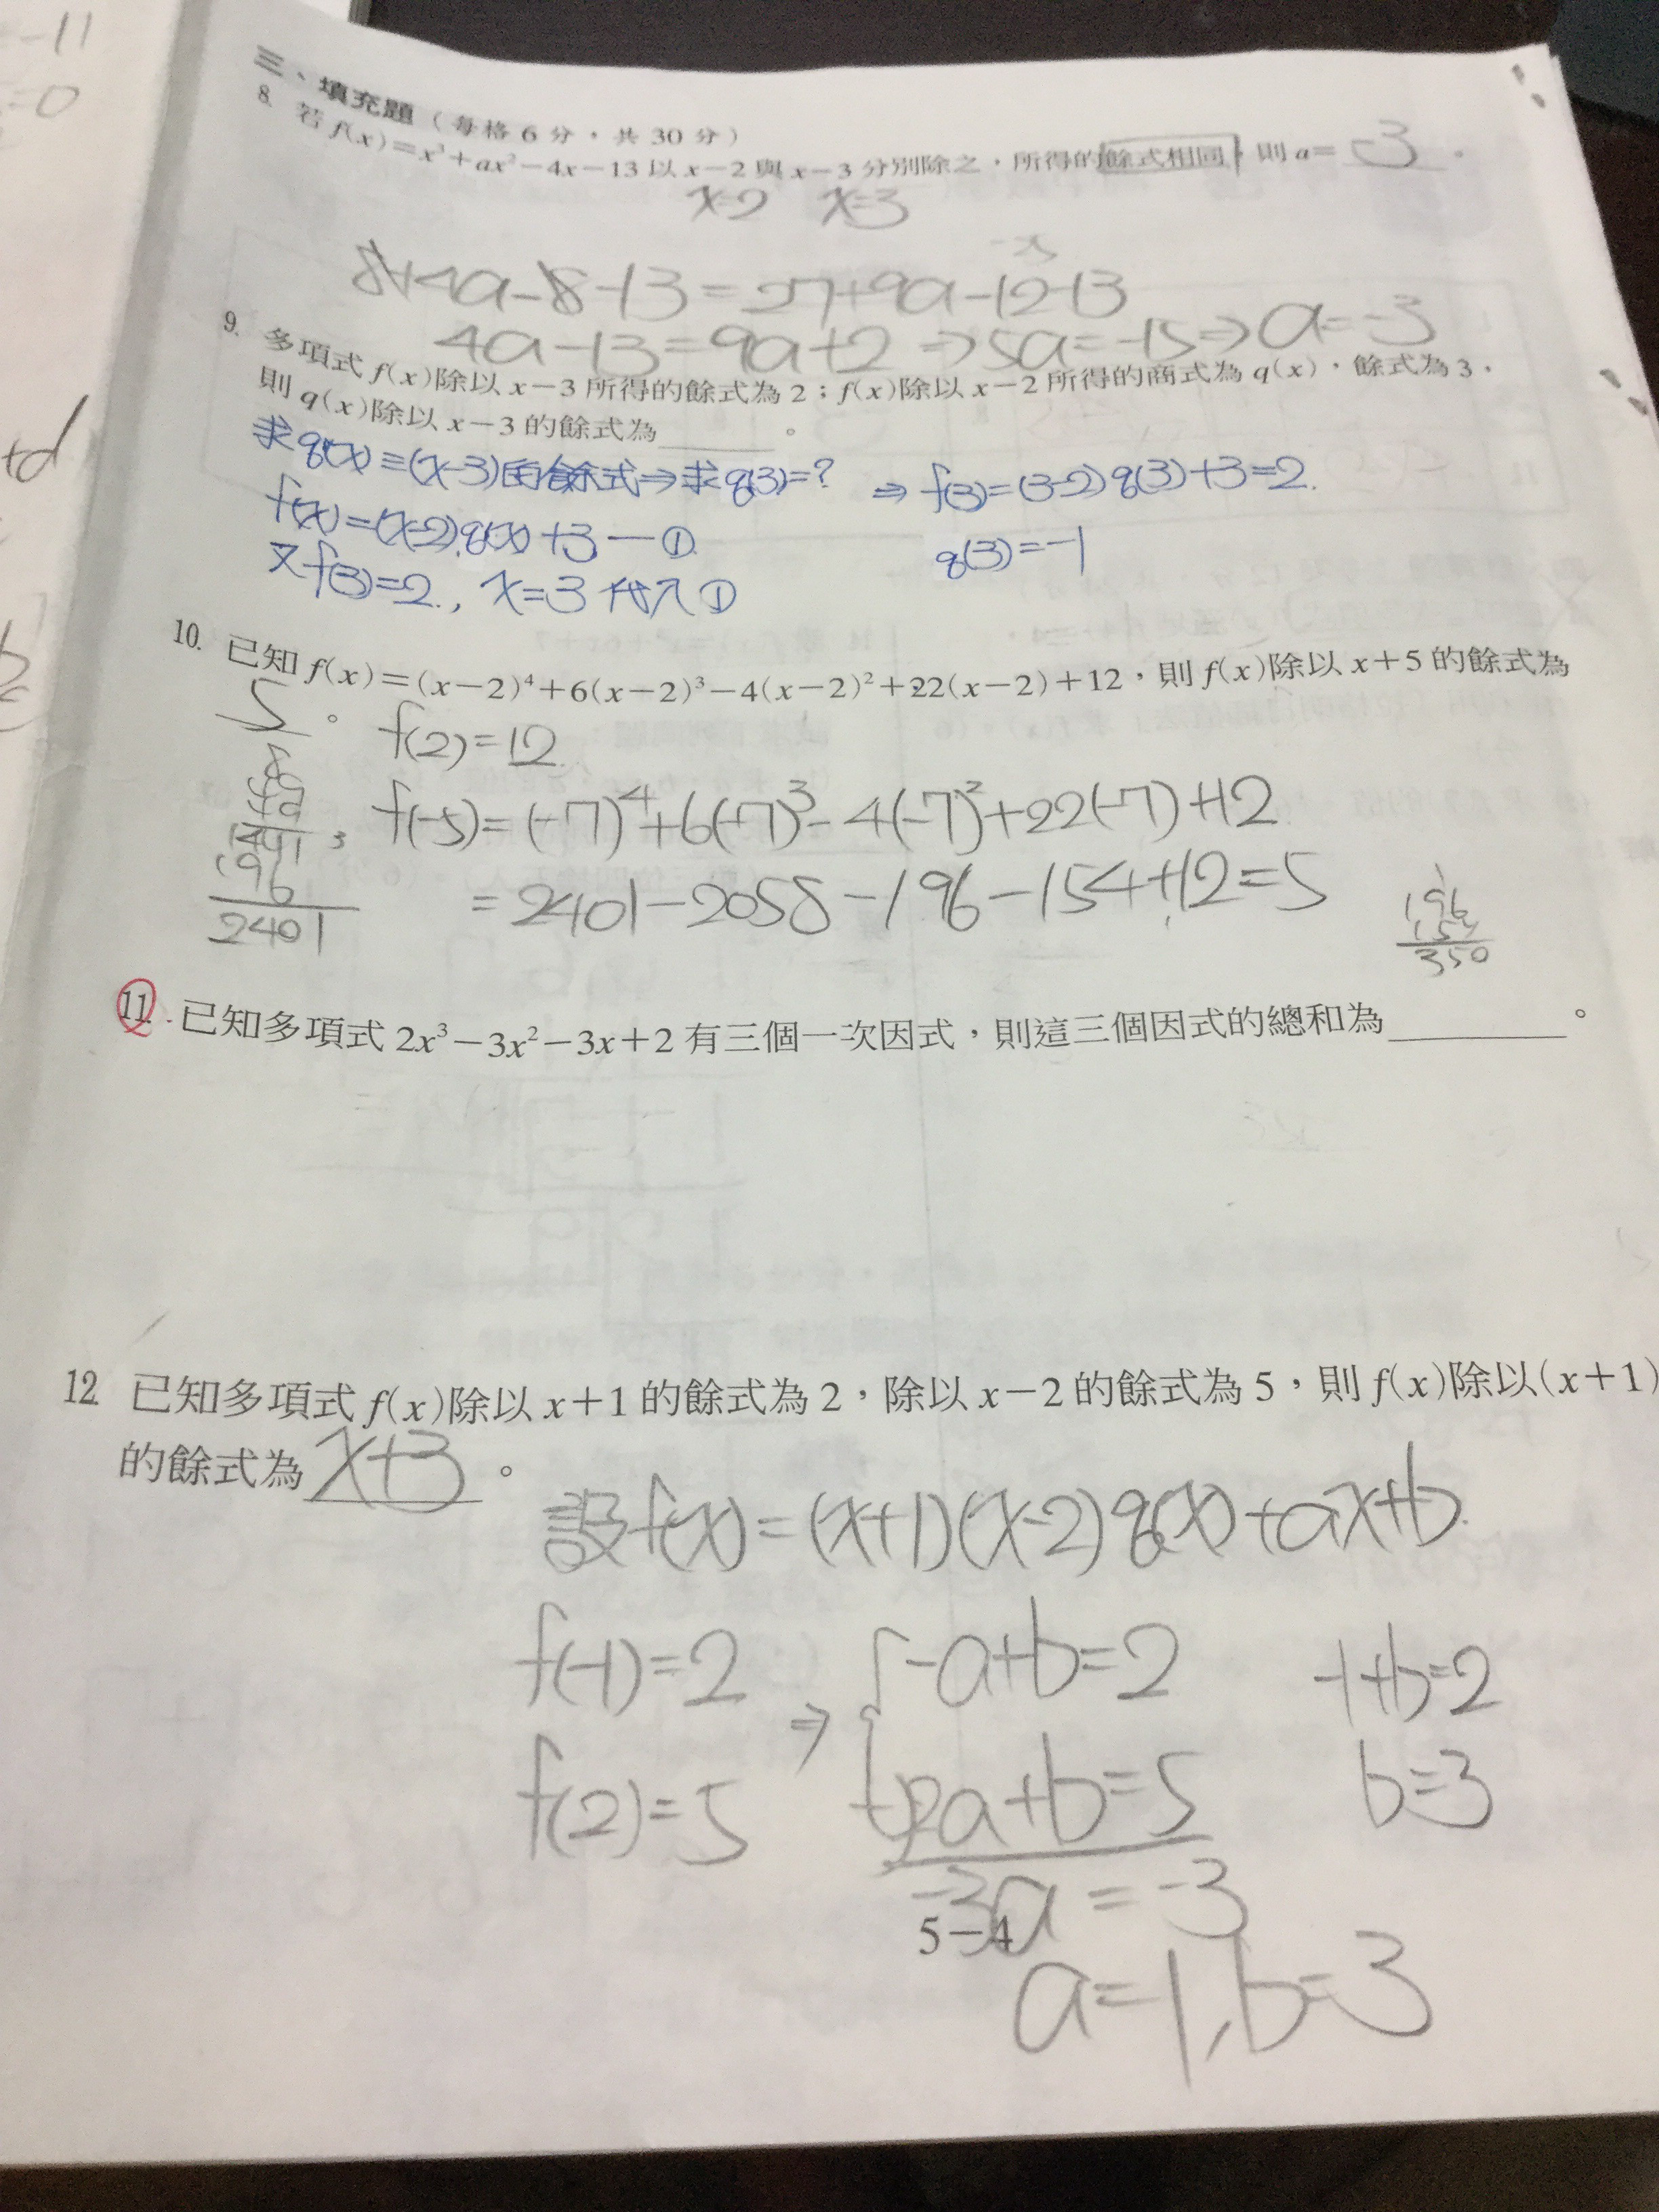 -11
=0
+d
三、填充題（每格 6 分，共 30 分）
8. 若 f(x)＝x³＋ax²－4x－13 以 x－2 與 x－3 分別除之，所得的餘式相同，則 a＝ -3 。
x=2 x=3
8+4a-8-13=27+9a-12-13
4a-13=9a+2 ⇒5a=-15⇒a=-3
9. 多項式 f(x)除以 x－3 所得的餘式為 2；f(x)除以 x－2 所得的商式為 q(x)，餘式為 3，
則 q(x)除以 x－3 的餘式為 。
求q(x)≡(x-3)的餘式⇒求q(3)=?
f(x)=(x-2)q(x)+3 —①
又f(3)=2, x=3代入①
⇒ f(3)=(3-2)q(3)+3=2.
q(3)=-1
10. 已知 f(x)＝(x－2)⁴＋6(x－2)³－4(x－2)²＋22(x－2)＋12，則 f(x)除以 x＋5 的餘式為
5 。
f(2)=12
f(-5)=(-7)⁴+6(-7)³-4(-7)²+22(-7)+12
=2401-2058-196-154+12=5
49
441
196
2401
196
154
350
11. 已知多項式 2x³－3x²－3x＋2 有三個一次因式，則這三個因式的總和為 。
12. 已知多項式 f(x)除以 x＋1 的餘式為 2，除以 x－2 的餘式為 5，則 f(x)除以(x＋1)
的餘式為 x+3 。
設f(x)=(x+1)(x-2)q(x)+ax+b
f(-1)=2
f(2)=5
⇒
-a+b=2
2a+b=5
-3a=-3
a=1,b=3
-1+b=2
b=3
5－4